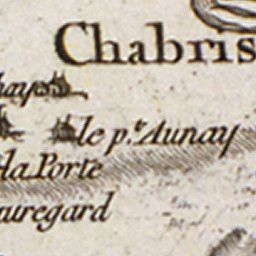 Chabris
hayes
le p.te Aunay
la Porte
auregard